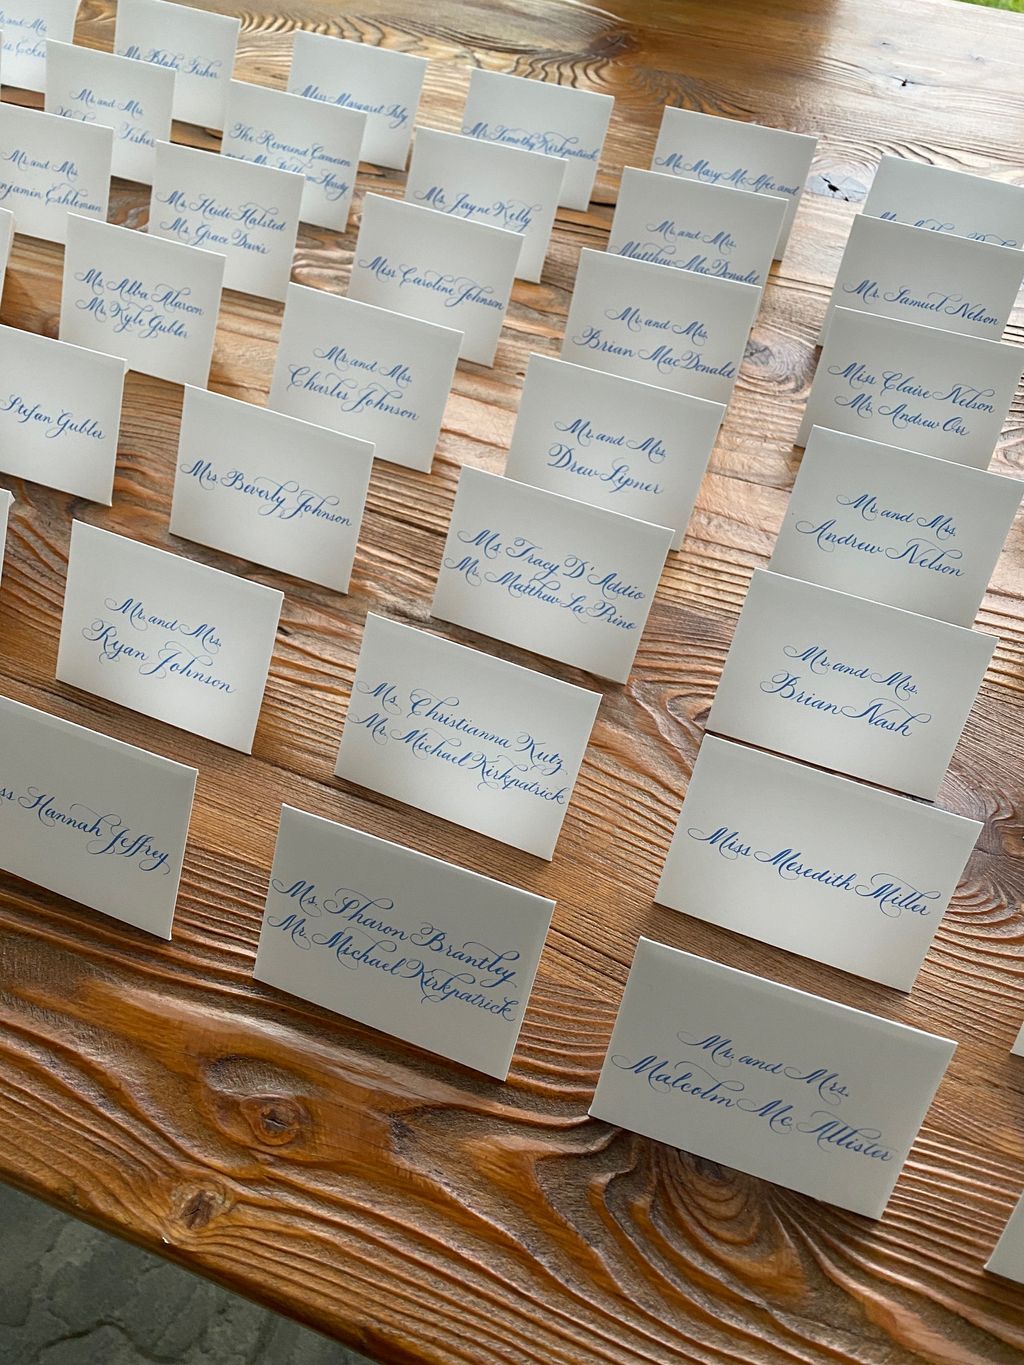 Mr. Blake Fisher
Mr. and Mrs.
Fisher
Mr. and Mrs.
Eshleman
Miss Margaret
The Reverend Cameron
Handy
Ms. Heidi Halsted
Ms. Grace Davis
Ms. Alba Alarcon
Mr. Kyle Gubler
Stefan Gubler
Mr. Timothy Kirkpatrick
Ms. Jayne Kelly
Miss Caroline Johnson
Mr. and Mrs.
Charles Johnson
Mrs. Beverly Johnson
Mr. and Mrs.
Ryan Johnson
Hannah Jeffrey
Ms. Mary McAfee and
Mr. and Mrs.
Matthew MacDonald
Mr. and Mrs.
Brian MacDonald
Mr. and Mrs.
Drew Lipner
Ms. Tracy D'Addio
Mr. Matthew LaPrino
Ms. Christianna Kutz
Mr. Michael Kirkpatrick
Ms. Sharon Brantley
Mr. Michael Kirkpatrick
Mr. Samuel Nelson
Miss Claire Nelson
Mr. Andrew Orr
Mr. and Mrs.
Andrew Nelson
Mr. and Mrs.
Brian Nash
Miss Meredith Miller
Mr. and Mrs.
Malcolm McAllister